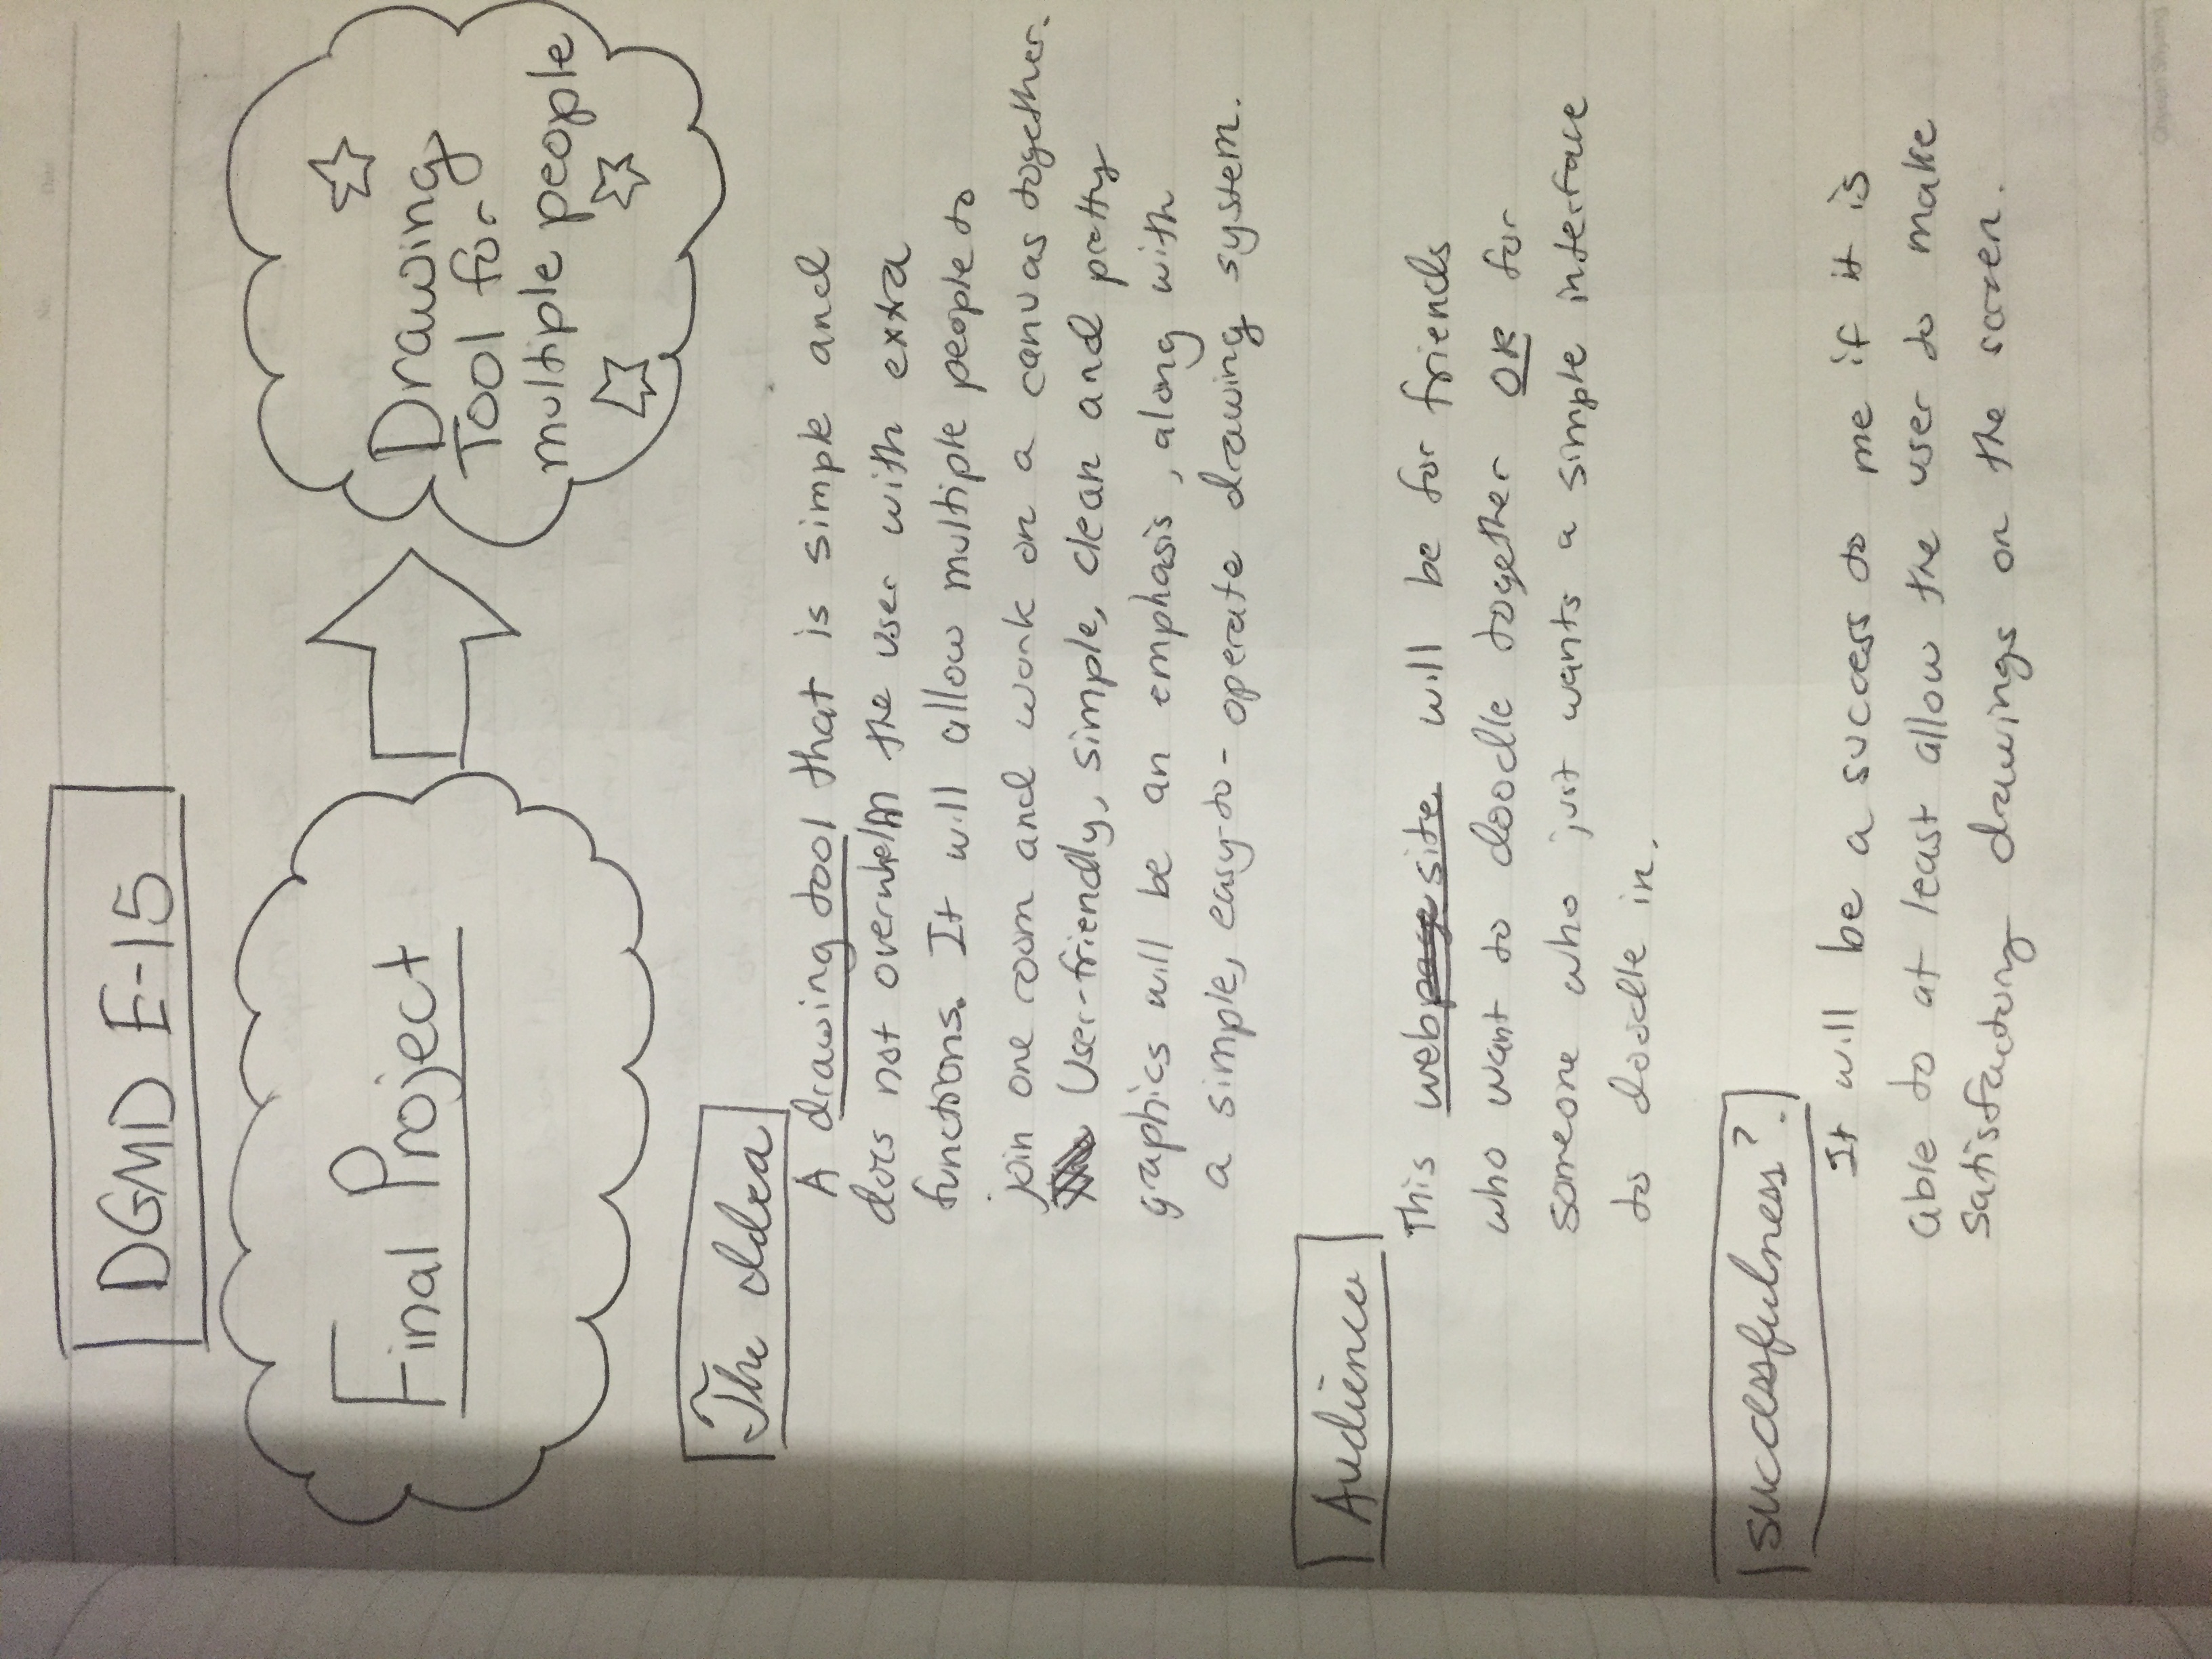 DGMD E-15
Final Project
Drawing
Tool for
multiple people
The Idea
A drawing tool that is simple and
does not overwhelm the user with extra
functions. It will allow multiple people to
join one room and work on a canvas together.
User-friendly, simple, clean and pretty
graphics will be an emphasis, along with
a simple, easy-to-operate drawing system.
Audience
This website will be for friends
who want to doodle together OR for
someone who just wants a simple interface
to doodle in.
Successfulness?
It will be a success to me if it is
able to at least allow the user to make
satisfactory drawings on the screen.